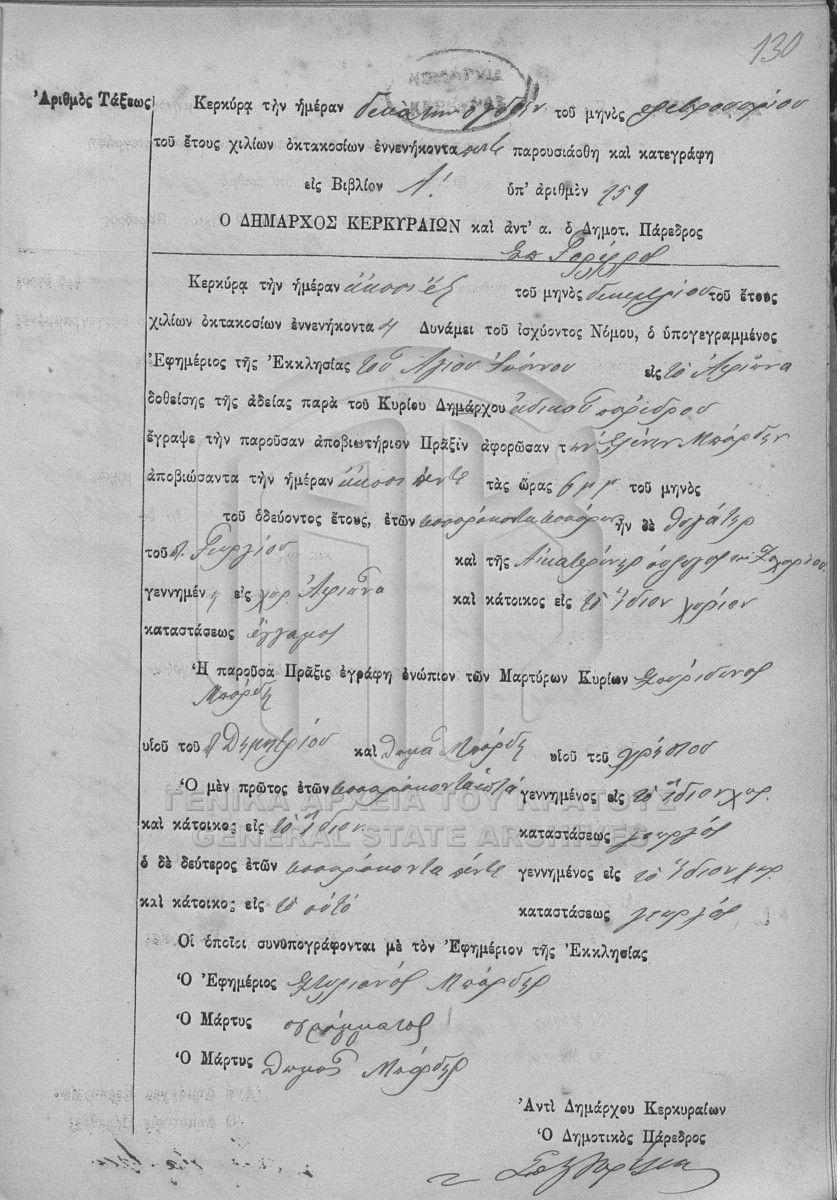 130
Ἀριθμὸς Τάξεως
Κερκύρᾳ τὴν ἡμέραν δεκάτην ὀγδόην τοῦ μηνὸς φεβρουαρίου
τοῦ ἔτους χιλίων ὀκτακοσίων ἐννενήκοντα πέντε παρουσιάσθη καὶ κατεγράφη
εἰς Βιβλίον Α! ὑπ' ἀριθμὸν 159
Ο ΔΗΜΑΡΧΟΣ ΚΕΡΚΥΡΑΙΩΝ καὶ ἀντ' α. ὁ Δημοτ. Πάρεδρος
Κερκύρᾳ τὴν ἡμέραν εἴκοσι ἕξ τοῦ μηνὸς δεκεμβρίου τοῦ ἔτους
χιλίων ὀκτακοσίων ἐννενήκοντα 4 Δυνάμει τοῦ ἰσχύοντος Νόμου, ὁ ὑπογεγραμμένος
Ἐφημέριος τῆς Ἐκκλησίας τοῦ Ἁγίου Ἰωάννου εἰς τὸ
δοθείσης τῆς ἀδείας παρὰ τοῦ Κυρίου Δημάρχου εἰδικοῦ παρέδρου
ἔγραψε τὴν παροῦσαν ἀποβιωτήριον Πρᾶξιν ἀφορῶσαν τὴν Ἑλένην Μπόρδην
ἀποβιώσαντα τὴν ἡμέραν εἴκοσι πέντε τὰς ὥρας 6 μ μ τοῦ μηνὸς
τοῦ ὁδεύοντος ἔτους, ἐτῶν τεσσαράκοντα τεσσάρων ἦν δὲ θυγάτηρ
τοῦ π. Γεωργίου καὶ τῆς Αἰκατερίνης σύζυγος τοῦ Ζαχαρίου
γεννημένη εἰς χωρ. καὶ κάτοικος εἰς τὸ ἴδιον χωρίον
καταστάσεως ἔγγαμος
Ἡ παροῦσα Πρᾶξις ἐγράφη ἐνώπιον τῶν Μαρτύρων Κυρίων Σπυρίδωνος
Μπόρδη
υἱοῦ τοῦ π Δημητρίου καὶ Θωμᾶ Μπόρδη υἱοῦ τοῦ Χρήστου
Ὁ μὲν πρῶτος ἐτῶν τεσσαράκοντα ἑπτά γεννημένος εἰς τὸ ἴδιον χωρ.
καὶ κάτοικος εἰς τὸ ἴδιον καταστάσεως γεωργός
ὁ δὲ δεύτερος ἐτῶν τεσσαράκοντα πέντε γεννημένος εἰς τὸ ἴδιον χωρ.
καὶ κάτοικος εἰς τὸ αὐτό καταστάσεως γεωργός
Οἱ ὁποῖοι συνυπογράφονται μὲ τὸν Ἐφημέριον τῆς Ἐκκλησίας
Ὁ Ἐφημέριος Στυλιανός Μπόρδης
Ὁ Μάρτυς ἀγράμματος
Ὁ Μάρτυς Θωμᾶς Μπόρδης
Ἀντὶ Δημάρχου Κερκυραίων
Ὁ Δημοτικὸς Πάρεδρος
ΓΕΝΙΚΑ ΑΡΧΕΙΑ ΤΟΥ ΚΡΑΤΟΥΣ
GENERAL STATE ARCHIVES